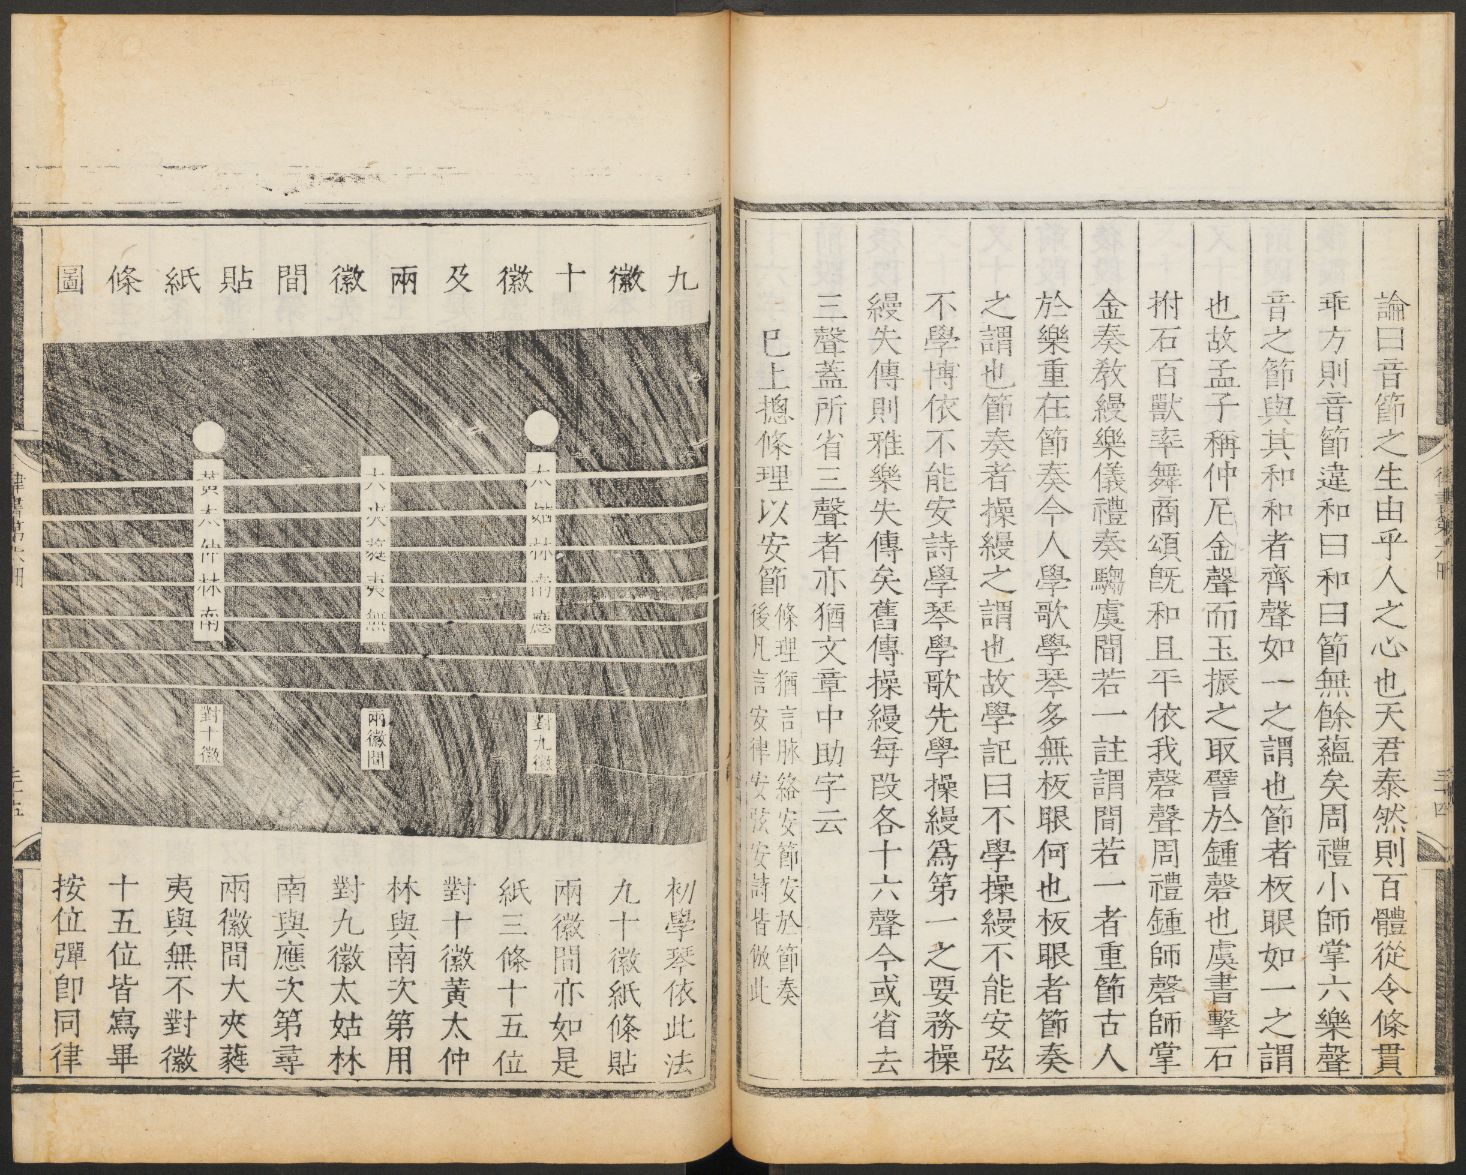 論曰音節之生由乎人之心也天君泰然則百體從令條貫
乖方則音節違和曰和曰節無餘蘊矣周禮小師掌六樂聲
音之節與其和和者齊聲如一之謂也節者板眼如一之謂
也故孟子稱仲尼金聲而玉振之取譬於鍾磬也虞書擊石
拊石百獸率舞商頌旣和且平依我磬聲周禮鍾師磬師掌
金奏教縵樂儀禮奏騶虞間若一註謂間若一者重節古人
於樂重在節奏今人學歌學琴多無板眼何也板眼者節奏
之謂也節奏者操縵之謂也故學記曰不學操縵不能安弦
不學博依不能安詩學琴學歌先學操縵爲第一之要務操
縵失傳則雅樂失傳矣舊傳操縵每段各十六聲今或省去
三聲蓋所省三聲者亦猶文章中助字云
已上摠條理以安節
條理猶言脉絡安節安於節奏
後凡言安律安弦安詩皆倣此
三十四
九徽十徽及兩徽間貼紙條圖
太姑林南應
大夾蕤夷無
黃太仲林南
對九徽
兩徽間
對十徽
初學琴依此法
九十徽紙條貼
兩徽間亦如是
紙三條十五位
對十徽黃太仲
林與南次第用
對九徽太姑林
南與應次第尋
兩徽間大夾蕤
夷與無不對徽
十五位皆寫畢
按位彈卽同律